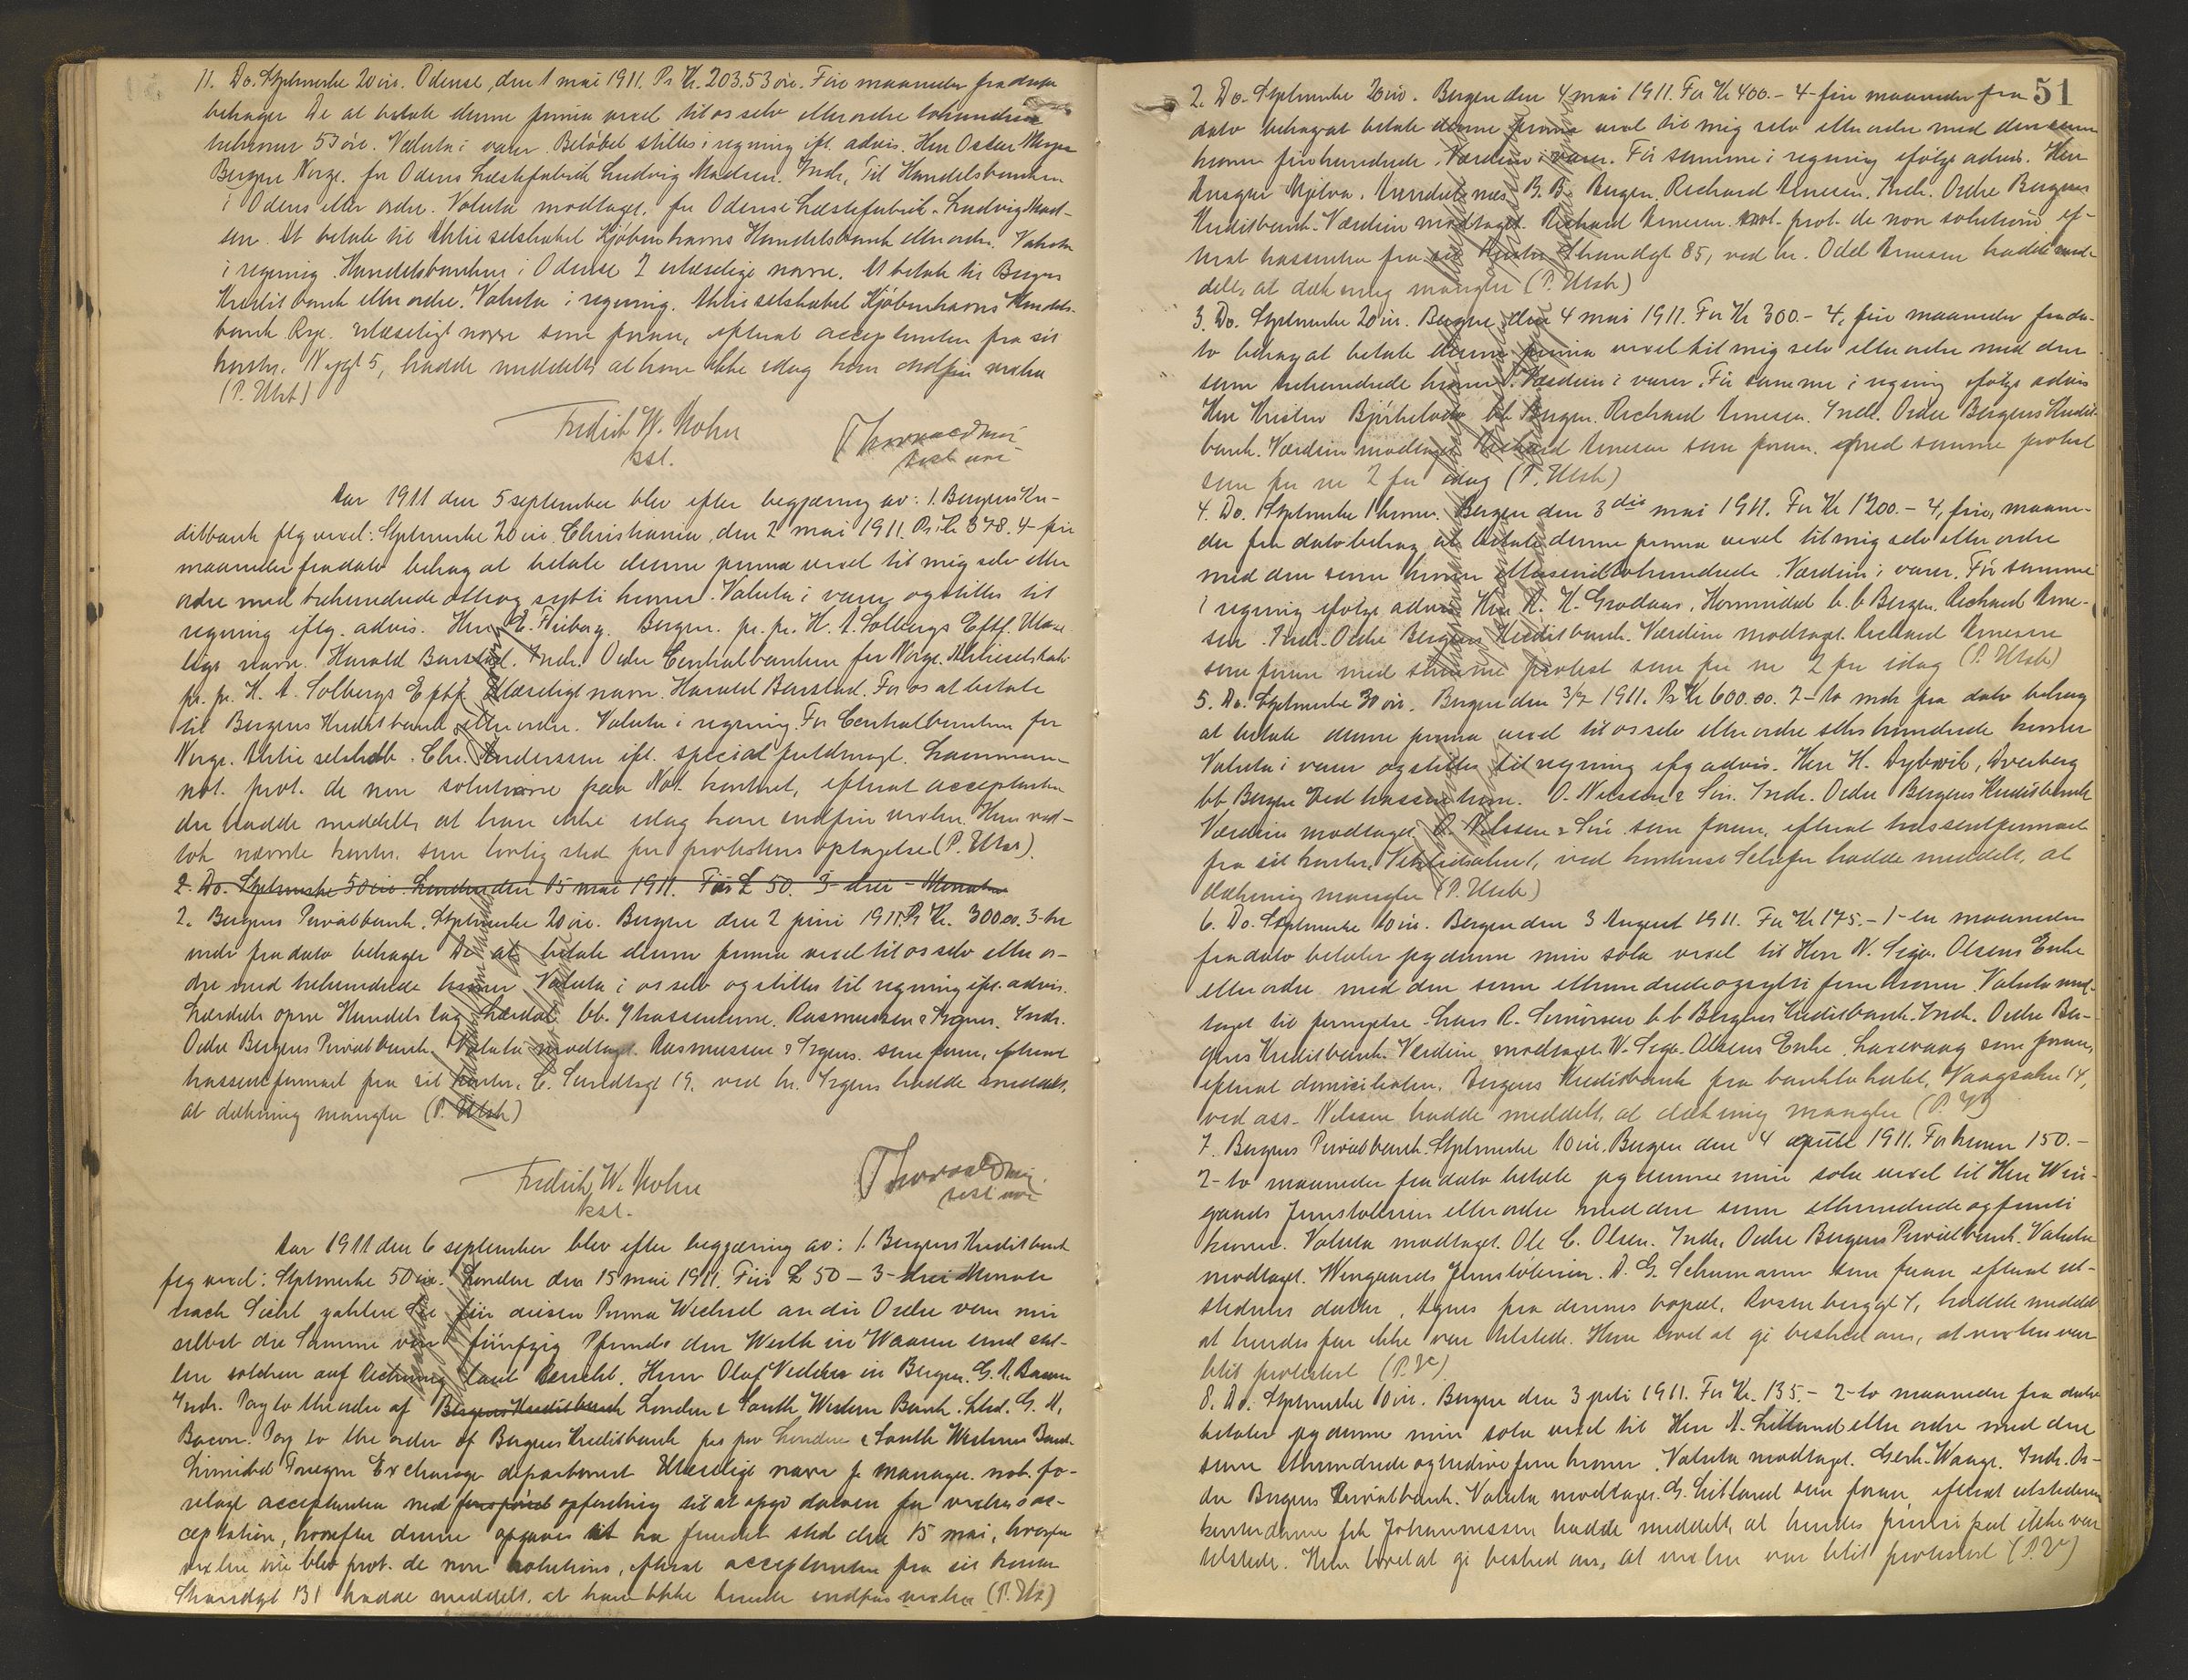 11. Do. Stplmerke 20 øre. Odense, den 1 mai 1911. Pr Kr. 203.53 øre. Fire maaneder fra dato
behager De at betale denne prima vexel til os selv eller ordre tohundrede
trekroner 53 øre. Valuta i varer. Beløbet stilles i regning ifl. advis. Herr Oscar Meyer
Bergen Norge. for Odense Læstefabrik Ludvig Madsen. Indr. Til Handelsbanken
i Odens eller ordre. Valuta modtaget. for Odense Læstefabrik. Ludvig Mad-
sen. At betale til Aktieselskabet Kjøbenhavns Handelsbank eller ordre. Valuta
i regning. Handelsbanken i Odense 2 ulæselige navne. At betale til Bergens
Kreditbank eller ordre. Valuta i regning. Aktieselskabet Kjøbenhavns Handels-
bank Rge. Ulæseligt navn som foran, efterat acceptanten fra sit
kontor, Nyggt 5, hadde meddelt, at han ikke idag kan indfri vexlen
(P. Utst)
Fredrik W. Mohn
kst.
Aar 1911 den 5 september blev efter begjæring av: 1. Bergens Kre-
ditbank flg vexel: Stplmerke 20 øre. Christiania, den 2 mai 1911. Pr. Kr 378. 4- fire
maaneder fra dato behag at betale denne prima vexel til mig selv eller
ordre med trehundrede otte og sytti kroner. Valuta i varer og stilles til
regning iflg. advis. Herr E. Friberg. Bergen. pr. pr. H. A. Solbergs Eftf. Ulæse
ligt navn. Harald Barstad. Indr. Ordre Centralbanken for Norge. Aktieselskab
pr. pr. H. A. Solbergs Eftf. Ulæseligt navn. Harald Barstad. For os at betale
til Bergens Kreditbank eller ordre. Valuta i regning. For Centralbanken for
Norge. Aktieselskab. Chr. Anderssen ifl. special fuldmagt.
not. prot. de non solutione paa Not. kontoret, efterat acceptanten
der hadde meddelt, at han ikke idag kan indfri vexlen. Han ved-
tok nævnte kontor som lovlig sted for protestens optagelse (P. Utst).
2. Do. Stplmerke 50 øre London den 15 mai 1911. Für £ 50. 3- drei - Monate
2. Bergens Privatbank. Stplmerke 20 øre. Bergen den 2 juni 1911. Pr Kr. 300.00. 3- tre
mdr fra dato behager De at betale denne prima vexel til os selv eller or-
dre med trehundrede kroner. Valuta i os selv og stilles til regning ifl. advis.
Lærdals opre Handelslag Lærdal. bb. Ihassenterne. Rasmussen & Irgens. Indr.
Ordre Bergens Privatbank. Valuta modtaget. Rasmussen & Irgens. som foran, efterat
trassentfirmaet fra sit kontor, C. Sundtsgt 19. ved hr. Irgens hadde meddelt,
at dækning mangler (P. Utst)
Fredrik W. Mohn
kst.
Aar 1911 den 6 september blev efter begjæring av: 1. Bergens Kreditbank
flg vexel: Stplmerke 50 øre. London den 15 mai 1911. Für £ 50 – 3- drei Monate
nach Sicht zahlen Sie für diesen Prima Wechsel an die Ordre von mir
selbst die Summe von fünfzig Pfund. den Werth in Waaren und stel-
len solchen auf Rechnung laut Bericht. Herrn Olaf Vedeler in Bergen. G. A. Bacon
Indr. Pay to the order of Bergens Kreditbank London & South Western Bank. Ltd. G. A.
Bacon. Pay to the order of Bergens Kreditbank per pro London & South Western Bank
Limited Foreign Exchange department Ulæseligt navn fr manager. not. fo-
relagt acceptanten med opfordring til at opgi datoen for vexlens ac-
ceptation, hvorefter denne opgaves at ha fundet sted den 15 mai, hvorefter
vexlen blev prot. de non solutione, efterat acceptanten fra sit kontor
Strandgt 131 hadde meddelt, at han ikke kunde indfri vexlen (P. Ut)
51
2. Do. Stplmerke 20 øre. Bergen den 4 mai 1911. For Kr 400.- 4- fire maaneder fra
dato behag at betale denne prima vexel til mig selv eller ordre med den sum
kroner firehundrede. Værdien i varer. Før samme i regning ifølge advis. Herr
Ansgar Mjelva. B. B. Bergen. Richard Arnesen. Indr. Ordre Bergens
Kreditbank. Værdien modtaget. Richard Arnesen. not. prot. de non solutione ef-
terat trassenten fra sit kontor Strandgt 85, ved hr. Odd Arnesen hadde med-
delt, at dækning mangler (P. Utst)
3. Do. Stplmerke 20 øre. Bergen, den 4 mai 1911. For Kr 300.- 4, fire maaneder fra da-
to behag at betale denne prima vexel til mig selv eller ordre med den
sum trehundrede kroner. Værdien i varer. Før samme i regning ifølge advis
Herr Kristen Bjørkelo bb Bergen. Richard Arnesen. Indr. Ordre Bergens Kredit-
bank. Værdien modtaget Richard Arnesen som foran. med samme protest
som for nr 2 for idag (P. Utst)
4. Do. Stplmerke 1 krone. Bergen den 3die mai 1911. For Kr 1200.- 4, fire, maane-
der fra dato behag at betale denne prima vexel til mig selv eller ordre
med den sum kroner ettusindtohundrede. Værdien i varer. Før samme
i regning ifølge advis. Herr A. K. Grodaas, Hornindal b.b Bergen. Richard Arne-
sen. Indr. Ordre Bergens Kreditbank. Værdien modtaget Richard Arnesen
som foran med samme protest som for nr 2 for idag (P. Utst)
5. Do. Stplmerke 30 øre. Bergen den 3/7 1911. Pr Kr 600.00. 2- to mdr fra dato behag
at betale denne prima vexel til os selv eller ordre sekshundrede kroner
Valuta i varer og stilles til regning iflg advis. Herr H. Dybvik, Averberg
bb Bergen Ved trassenterne. O. Nilssen & Søn. Indr. Ordre Bergens Kreditbank
Værdien modtaget O. Nilssen & Søn som foran, efterat trassentfirmaet
fra sit kontor, ved kontorist hadde meddelt, at
dækning mangler (P. Utst)
6. Do. Stplmerke 10 øre. Bergen den 3 August 1911. For Kr 175.- 1- en maaneder
fra dato betaler jeg denne min sola vexel til Herr N. Segv. Olsens Enke
eller ordre med den sum ethundredeogsytti fem kroner. Valuta mod-
taget til fornøyelse. Lars A. Simonsen b b Bergens Kreditbank. Indr. Ordre Ber-
gens Kreditbank. Værdien modtaget N. Segv. Olsens Enke. Laxevaag som foran,
efterat domiciliaten, Bergens Kreditbank fra banklokalet, Vaagsalm 14,
ved ass. Nilssen hadde meddelt, at dækning mangler (P. V)
7. Bergens Privatbank. Stplmerke 10 øre. Bergen den 4 april 1911. For kroner 150.-
2- to maaneder fra dato betale jeg denne min sola vexel til Herr Win-
gaards Jernstøberi eller ordre med den sum ethundredeogfemti
kroner. Valuta modtaget. Ole C. Olsen. Indr. Ordre Bergens Privatbank. Valuta
modtaget. Wingaards Jernstøberi. A. G. Schumann som foran efterat ut-
stederens datter, Agnes fra dennes bopæl, Rosenberggt 7, hadde meddelt
at hendes far ikke var tilstede. Hun lovet at gi besked om, at vexlen var
blit protestert (P. V)
8. Do. Stplmerke 10 øre. Bergen den 3 juli 1911. For Kr. 135.- 2- to maaneder fra dato
betaler jeg denne min sola vexel til Herr A. Litland eller ordre med den
sum ethundredeogtredivefem kroner. Valuta modtaget. Gerh. Waage. Indr. Or-
dre Bergens Privatbank. Valuta modtaget. G. Litland som foran, efterat utstederens
kontordame frk Johannessen hadde meddelt, at hendes principal ikke var
tilstede. Hun lovet at gi besked om, at vexlen var blit protestert (P. V)